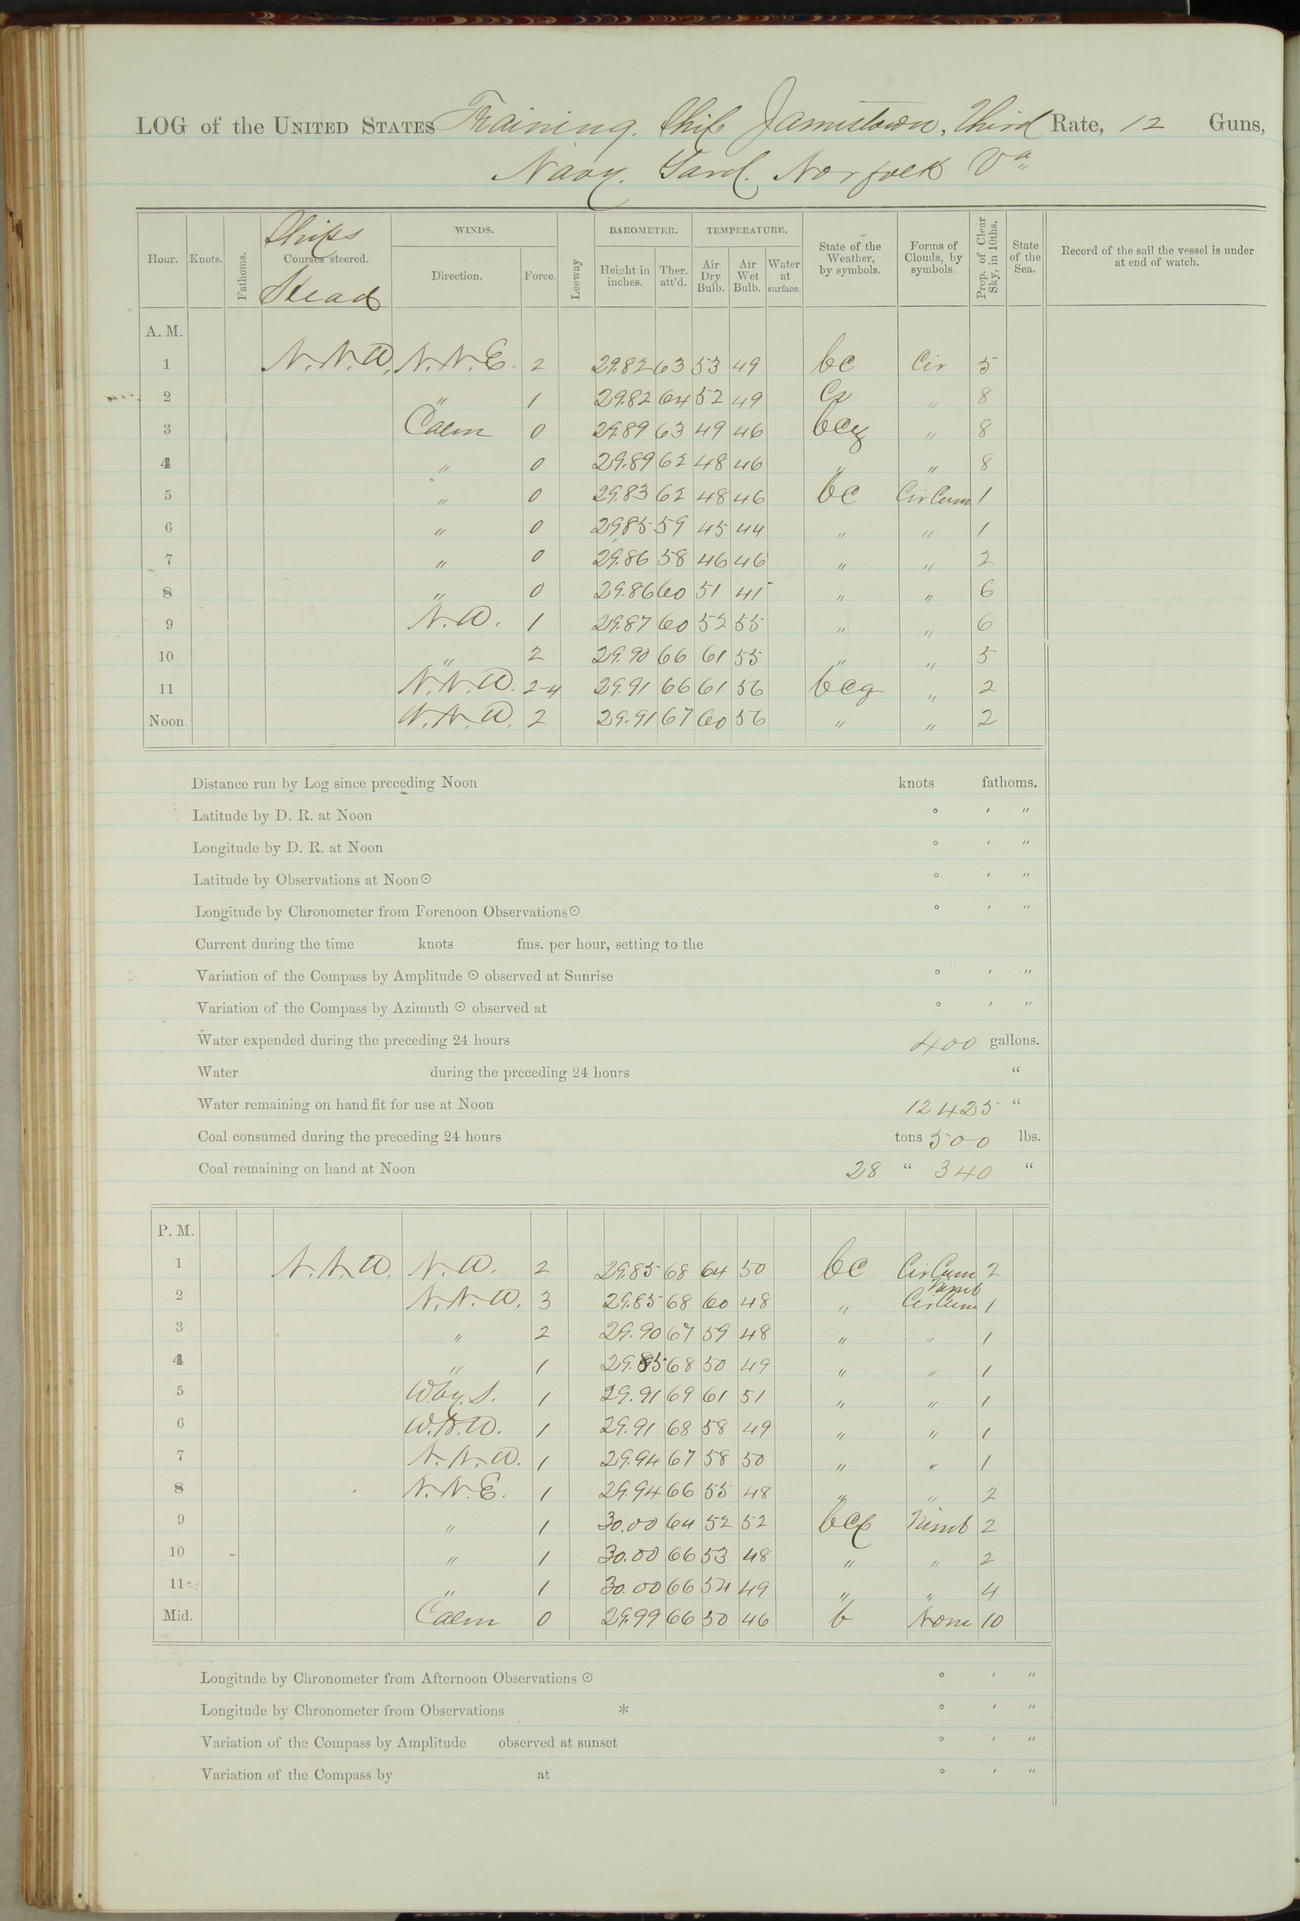 LOG of the UNITED STATES Training Ship Jamestown, Third Rate, 12 Guns,
Navy Yard Norfolk Va
Hour. Knots. Fathoms. Ships Courses steered. Head WINDS. Direction. Force. Leeway BAROMETER. Height in inches. Ther. att'd. TEMPERATURE. Air Dry Bulb. Air Wet Bulb. Water at surface. State of the Weather, by symbols. Forms of Clouds, by symbols. Prop. of Clear Sky, in 10ths. State of the Sea. Record of the sail the vessel is under at end of watch.
A. M.
1 N.N.W. N.N.E. 2 29.82 63 53 49 bc Cir 5
2 " 1 29.82 64 52 49 " 8
3 Calm 0 29.89 63 49 46 " 8
4 " 0 29.89 62 48 46 " " 8
5 " 0 29.83 62 48 46 bc Cir Cum 1
6 " 0 29.85 59 45 44 " " 1
7 " 0 29.86 58 46 46 " " 2
8 " 0 29.86 60 51 45 " " 6
9 N.W. 1 29.87 60 52 55 " " 6
10 " 2 29.90 66 61 55 " " 5
11 N.N.W. 2-4 29.91 66 61 56 bcq " 2
Noon. N.N.W. 2 29.91 67 60 56 " " 2
Distance run by Log since preceding Noon knots fathoms.
Latitude by D. R. at Noon ° ′ ″
Longitude by D. R. at Noon ° ′ ″
Latitude by Observations at Noon ☉ ° ′ ″
Longitude by Chronometer from Forenoon Observations ☉ ° ′ ″
Current during the time knots fms. per hour, setting to the
Variation of the Compass by Amplitude ☉ observed at Sunrise ° ′ ″
Variation of the Compass by Azimuth ☉ observed at ° ′ ″
Water expended during the preceding 24 hours 400 gallons.
Water during the preceding 24 hours "
Water remaining on hand fit for use at Noon 12425 "
Coal consumed during the preceding 24 hours tons 500 lbs.
Coal remaining on hand at Noon 28 " 340 "
P. M.
1 N.N.W. N.W. 2 29.85 68 64 50 bc Cir Cum 2
2 N.N.W. 3 29.85 68 60 48 " Nimb Cir Cum 1
3 " 2 29.90 67 59 48 " " 1
4 " 1 29.85 68 50 49 " " 1
5 W.by.S. 1 29.91 69 61 51 " " 1
6 1 29.91 68 58 49 " " 1
7 N.N.W. 1 29.94 67 58 50 " " 1
8 N.N.E. 1 29.94 66 55 48 " " 2
9 " 1 30.00 64 52 52 Nimb 2
10 " 1 30.00 66 53 48 " " 2
11 " 1 30.00 66 54 49 " " 4
Mid. Calm 0 29.99 66 50 46 b None 10
Longitude by Chronometer from Afternoon Observations ☉ ° ′ ″
Longitude by Chronometer from Observations * ° ′ ″
Variation of the Compass by Amplitude observed at sunset ° ′ ″
Variation of the Compass by at ° ′ ″